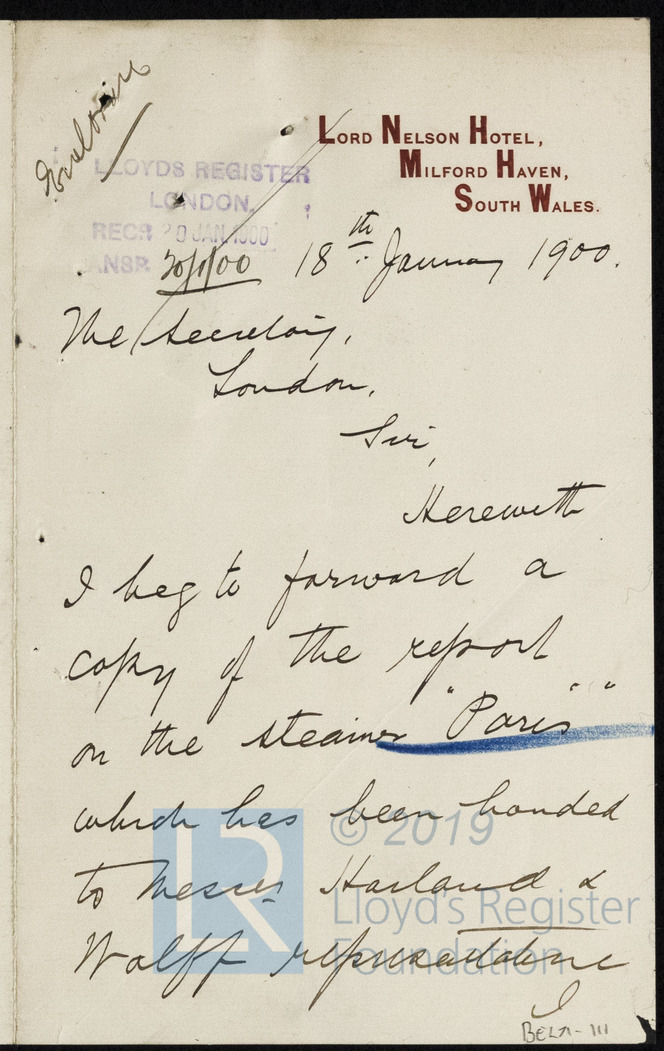 LORD NELSON HOTEL,
MILFORD HAVEN,
SOUTH WALES.
LLOYDS REGISTER
LONDON.
RECD 20 JAN. 1900
ANSR 30/1/00
18th January 1900.
The Secretary,
London.
Sir,
Herewith
I beg to forward a
copy of the report
on the steamer "Paris"
which has been handed
to Messrs Harland &
Wolff representative
I
© 2019
LR
Lloyd's Register
Foundation